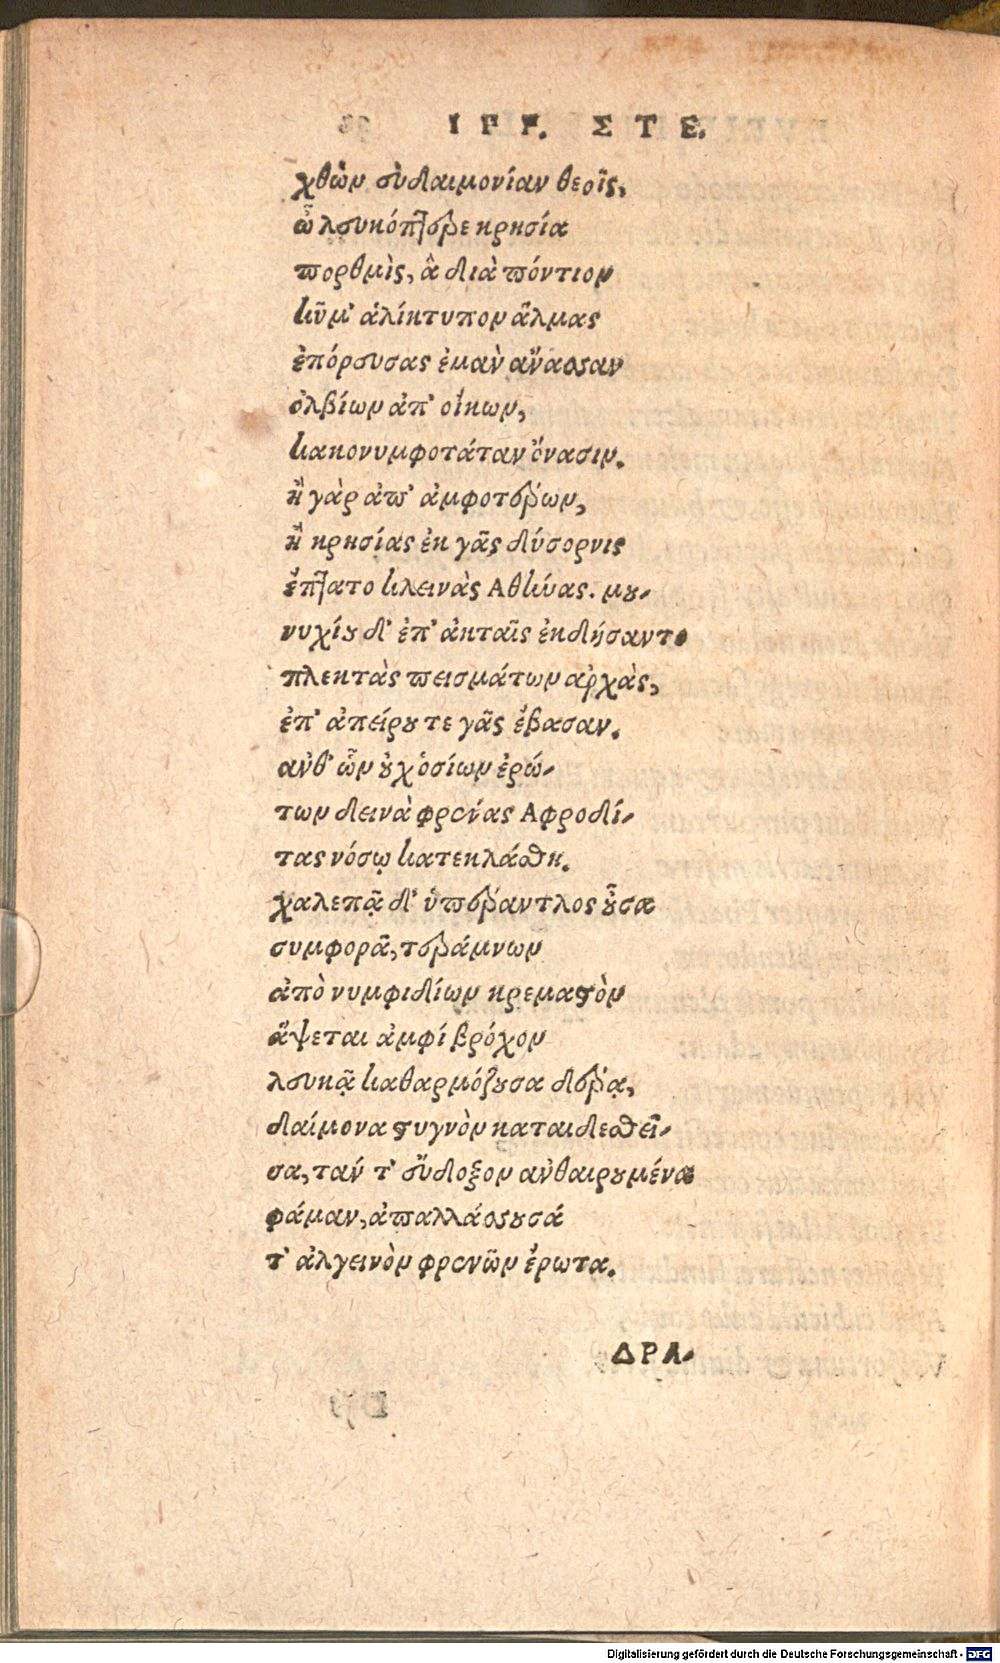 ΙΠΠ. ΣΤΕ.
χθὼν εὐδαιμονίαν θεοῖς,
ὦ λευκόπτερε κρησία
πορθμὶς, ἃ διὰ πόντιον
κῦμ' ἁλίκτυπον ἅλμας
ἐπόρευσας ἐμὰν ἄνασσαν
ὀλβίων ἀπ' οἴκων,
κακονυμφοτάταν ὄνασιν.
ἢ γὰρ ἀπ' ἀμφοτέρων,
ἢ κρησίας ἐκ γᾶς δύσορνις
ἔπτατο κλεινὰς Αθήνας. μου-
νυχίου δ' ἐπ' ἀκταῖς ἐκδήσαντο
πλεκτὰς πεισμάτων ἀρχὰς,
ἐπ' ἀπείρου τε γᾶς ἔβασαν.
ἀνθ' ὧν οὐχ ὁσίων ἐρώ-
των δεινὰ φρενίας Αφροδί-
τας νόσῳ κατεκλάσθη.
χαλεπᾷ δ' ὑπέραντλος οὖσα
συμφορᾶ, τεράμνων
ἀπὸ νυμφιδίων κρεμαστὸν
ἅψεται ἀμφί βρόχον
λευκᾷ καθαρμόζουσα δέρᾳ,
δαίμονα στυγνὸν καταιδεσθεῖ-
σα, τάν τ' εὔδοξον ἀνθαιρουμένα
φάμαν, ἀπαλλάσσουσά
τ' ἀλγεινὸν φρενῶν ἔρωτα.
ΔΡΑ-
Digitalisierung gefördert durch die Deutsche Forschungsgemeinschaft - DFG